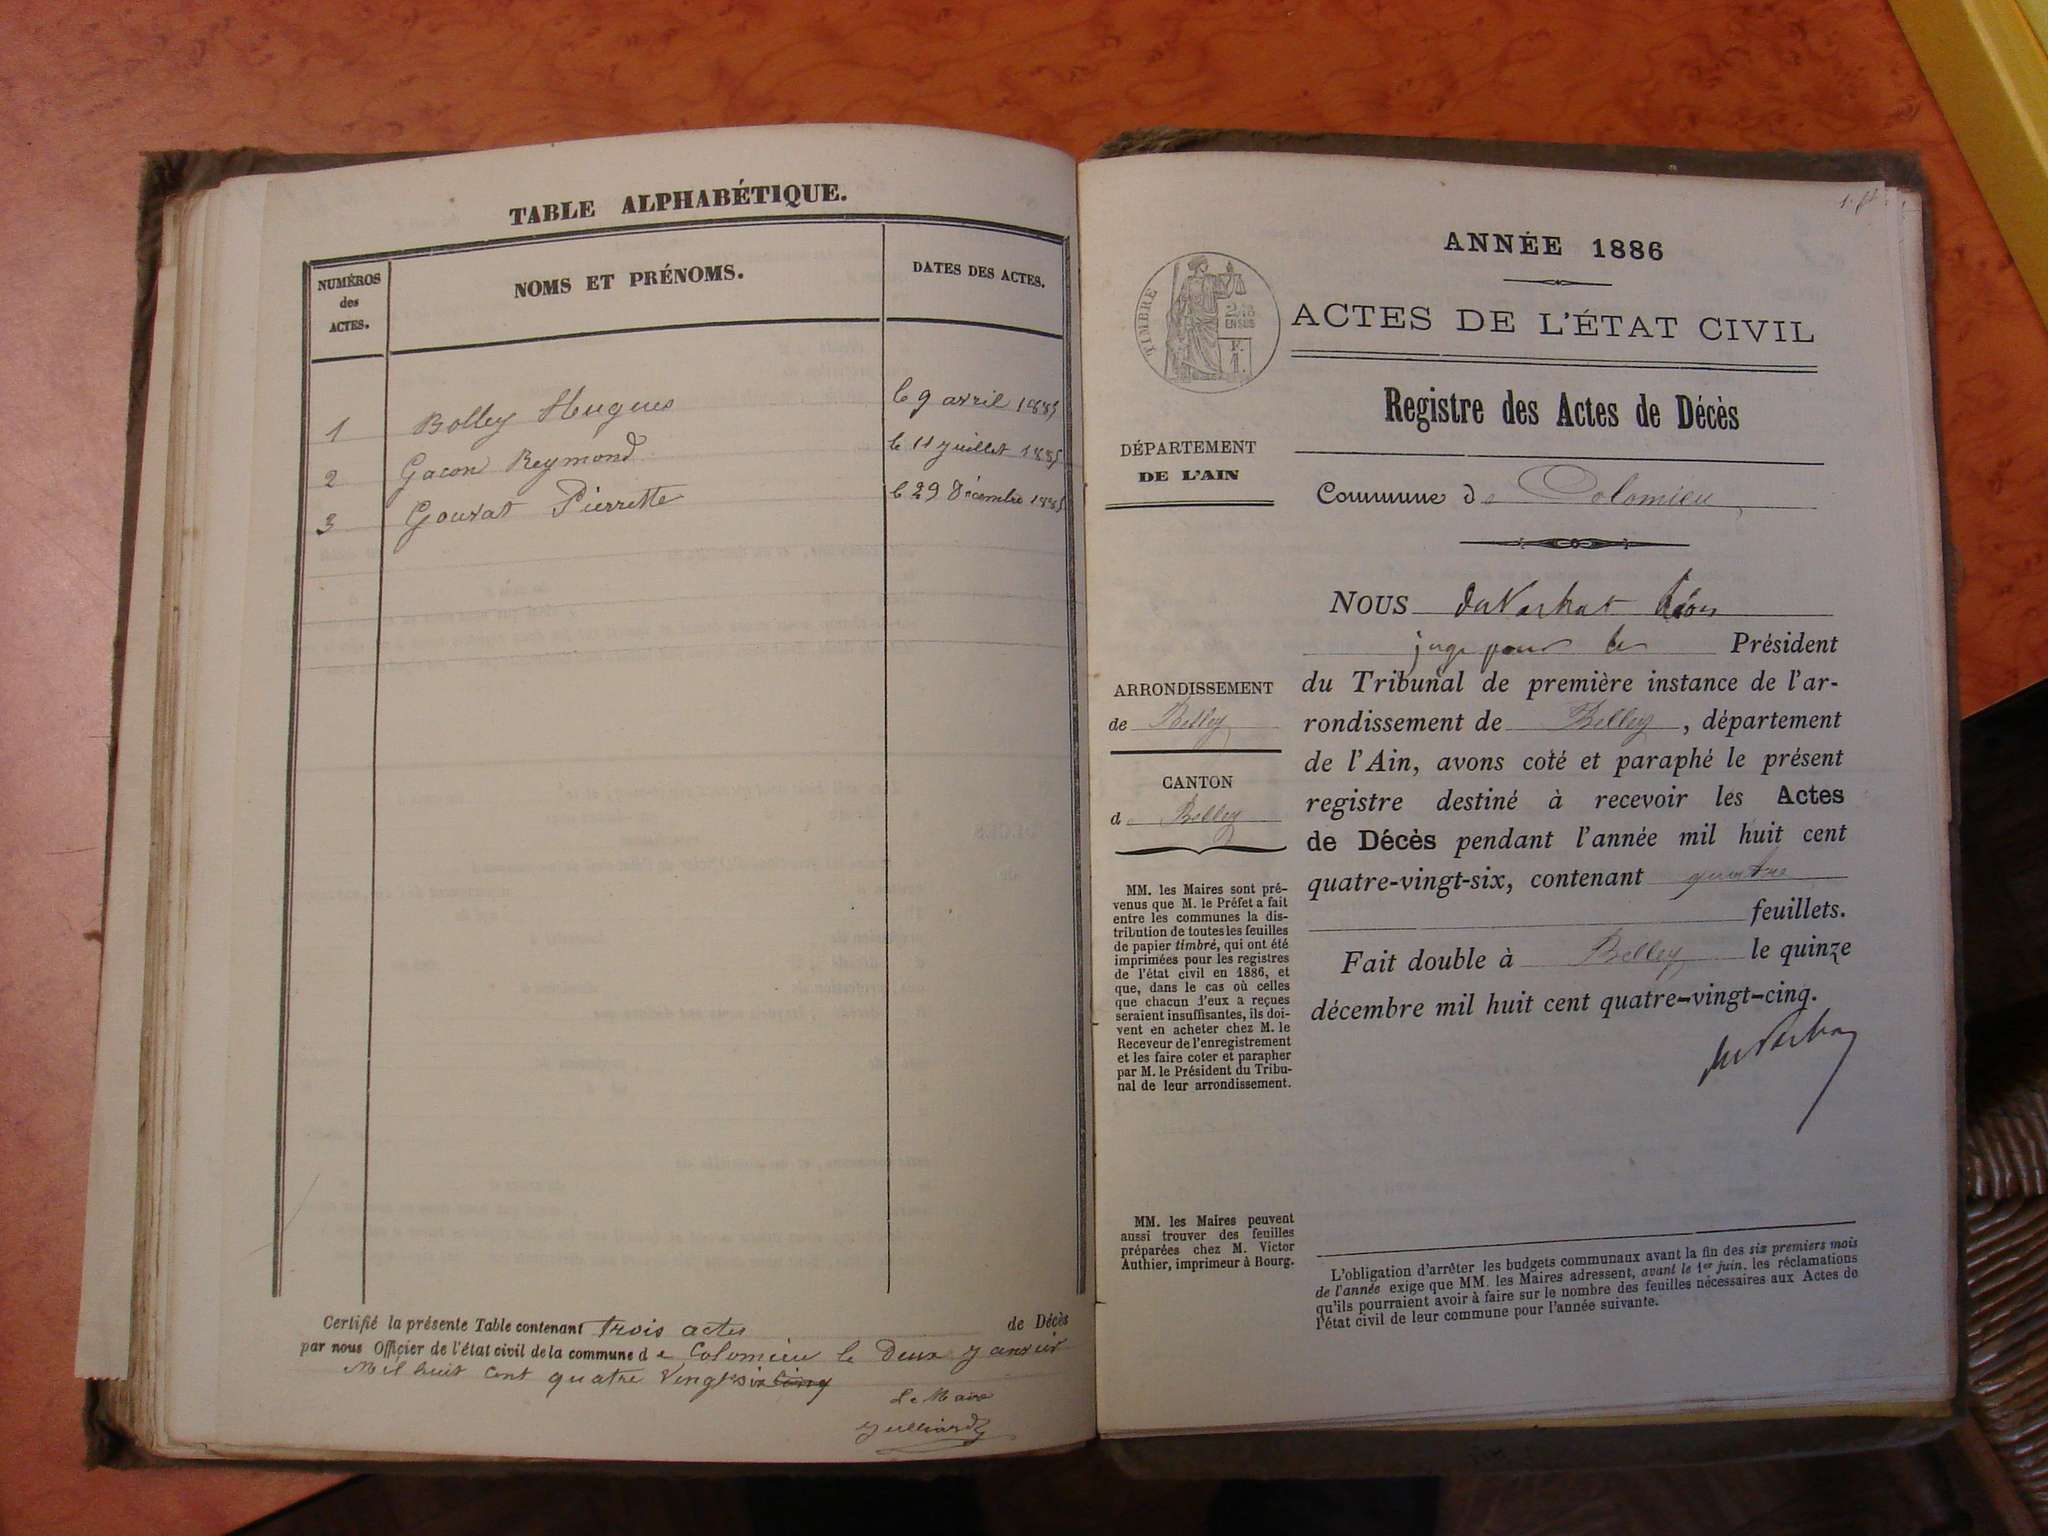 TABLE ALPHABÉTIQUE.
NUMÉROS
des
ACTES.
NOMS ET PRÉNOMS.
DATES DES ACTES.
1 Bolley Hugues le 9 avril 1885
2 Gacon Reymond le 11 juillet 1885
3 Gourat Pierrette le 29 Décembre 1885
Certifié la présente Table contenant trois actes de Décès
par nous Officier de l'état civil de la commune de Colomieu le Deux janvier
Mil huit cent quatre vingt six cinq
Le Maire
Julliard
ANNÉE 1886
TIMBRE
EN SUS
ACTES DE L'ÉTAT CIVIL
Registre des Actes de Décès
DÉPARTEMENT
DE L'AIN
Commune de Colomieu
NOUS
juge pour le Président
du Tribunal de première instance de l'ar-
rondissement de Belley, département
de l'Ain, avons coté et paraphé le présent
registre destiné à recevoir les Actes
de Décès pendant l'année mil huit cent
quatre-vingt-six, contenant quatre
feuillets.
Fait double à Belley le quinze
décembre mil huit cent quatre-vingt-cinq.
ARRONDISSEMENT
de Belley
CANTON
de Belley
MM. les Maires sont pré-
venus que M. le Préfet a fait
entre les communes la dis-
tribution de toutes les feuilles
de papier timbré, qui ont été
imprimées pour les registres
de l'état civil en 1886, et
que, dans le cas où celles
que chacun d'eux a reçues
seraient insuffisantes, ils doi-
vent en acheter chez M. le
Receveur de l'enregistrement
et les faire coter et parapher
par M. le Président du Tribu-
nal de leur arrondissement.
MM. les Maires peuvent
aussi trouver des feuilles
préparées chez M. Victor
Authier, imprimeur à Bourg.
L'obligation d'arrêter les budgets communaux avant la fin des six premiers mois
de l'année exige que MM. les Maires adressent, avant le 1er juin, les réclamations
qu'ils pourraient avoir à faire sur le nombre des feuilles nécessaires aux Actes de
l'état civil de leur commune pour l'année suivante.